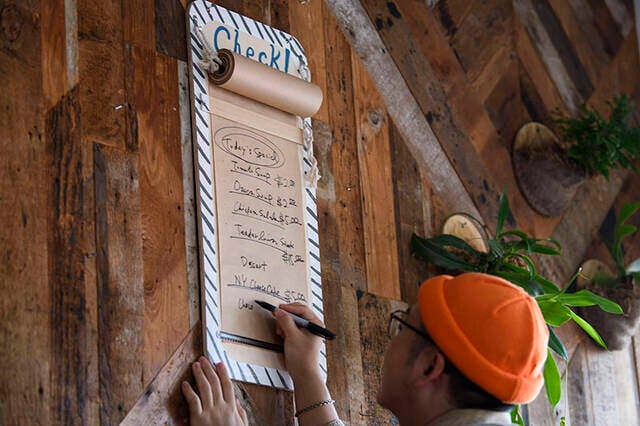 Check!
Today's Special
Tomato Soup $2.00
Onion Soup $2.00
Chicken Salad $5.00
Tenderloin Steak
$15.00
Dessert
NY Cheese Cake $5.00
Choco